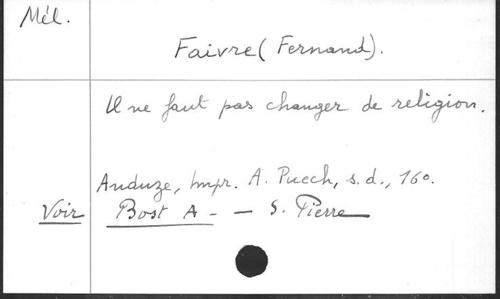 Mél.
Faivre (Fernand).
Il ne faut pas changer de religion.
Anduze, Impr. A. Puech, s.d., 16o.
Voir Bost A - - S. Pierre